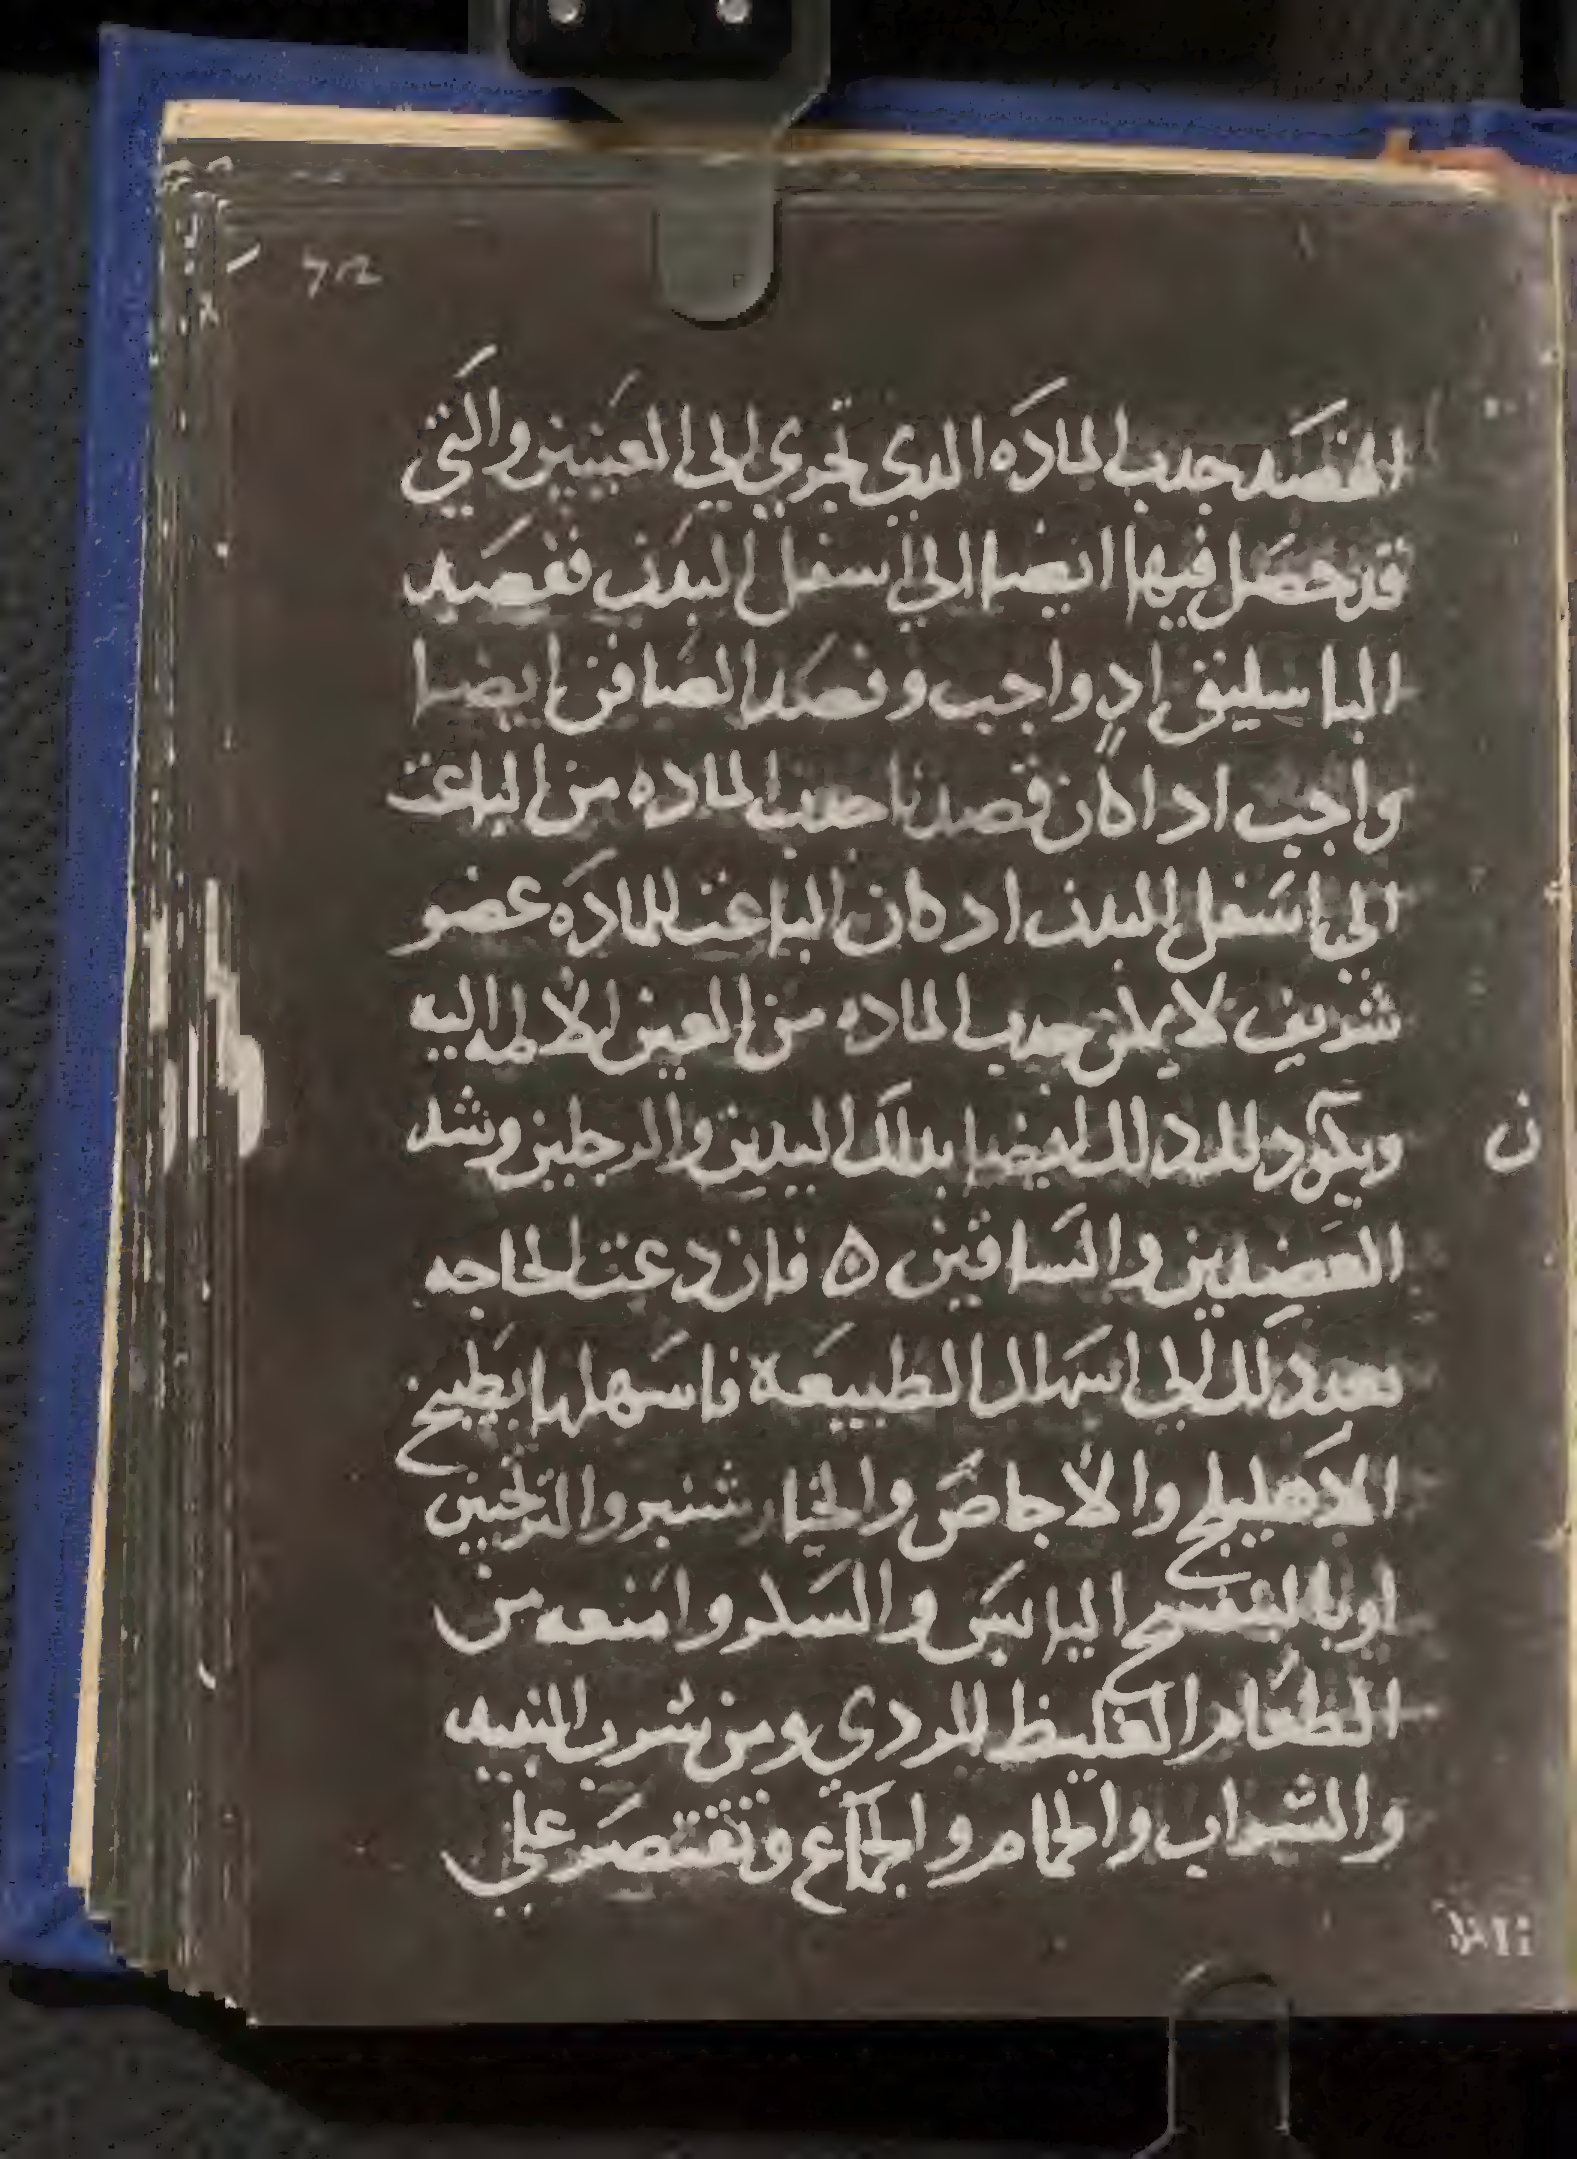 القصد جدب الماده الدى تجري الى العينين والتي
قد حصل فيها ايضا الي اسفل البدن ففصيد
الباسليق اد واجب وفصد الصافن ايضا
واجب اد اكان قصدنا جدب الماده من الباعت
الي اسفل البدن اد كان الباعت للماده عضو
شريف لا يمكن جدب الماده من العين الا لمه اليه
ويكون دلك ايضا بدلك اليدين والرجلين وشد
ن
العضدين والساقين ه فان دعت الحاجه
بعد دلك الى اسهال الطبيعة فاسهلها بطبيخ
الاهليلج والاجاص والخيار شنبر والترنجبين
او بالبنفسج اليابس والسكر وامنعه من
الطعام الغليظ الردي ومن شرب النبيد
والشراب والحمام والجماع وتقتصر علي